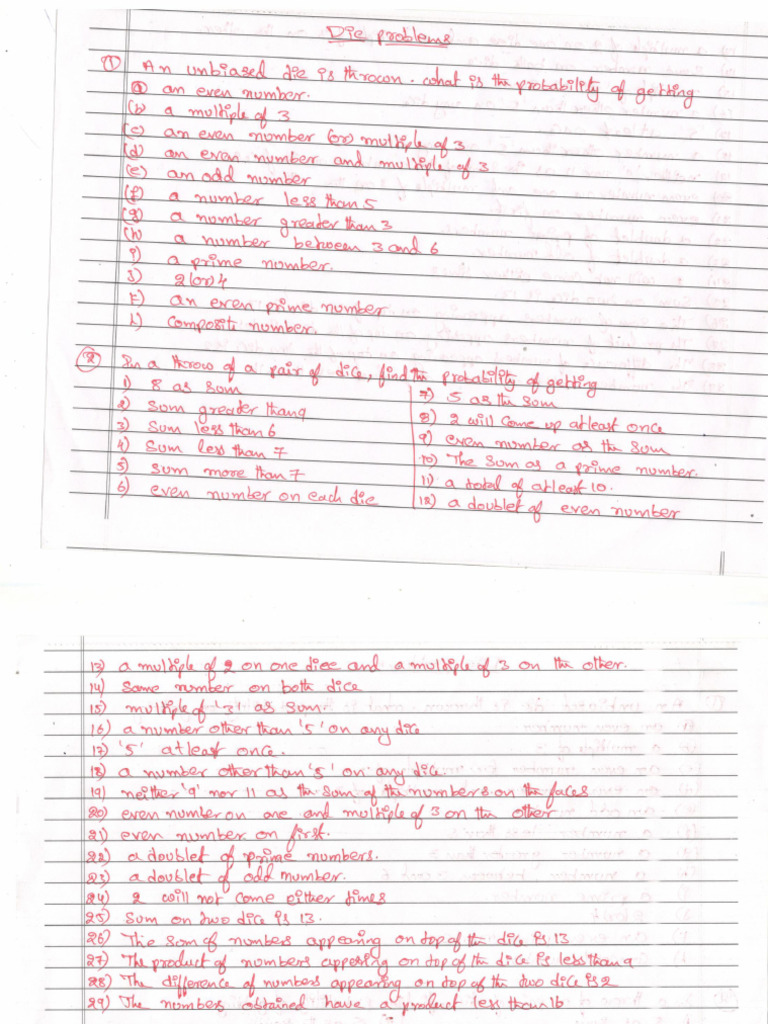 Die problems
① An unbiased die is thrown. what is the probability of getting
ⓐ an even number.
(b) a multiple of 3
(c) an even number (or) multiple of 3
(d) an even number and multiple of 3
(e) an odd number
(f) a number less than 5
(g) a number greater than 3
(h) a number between 3 and 6
i) a prime number.
j) 2(or)4
k) an even prime number
L) composite number.
② In a throw of a pair of dice, find the probability of getting
1) 8 as sum
2) sum greater than 9
3) sum less than 6
4) sum less than 7
5) sum more than 7
6) even number on each die
7) 5 as the sum
8) 2 will come up atleast once
9) even number as the sum
10) The sum as a prime number.
11) a total of atleast 10.
12) a doublet of even number
13) a multiple of 2 on one dice and a multiple of 3 on the other.
14) same number on both dice
15) multiple of '3' as sum.
16) a number other than '5' on any dice
17) '5' atleast once.
18) a number other than '5' on any dice.
19) neither '9' nor 11 as the sum of the numbers on the faces
20) even number on one and multiple of 3 on the other
21) even number on first.
22) a doublet of prime numbers.
23) a doublet of odd number.
24) 2 will not come either times
25) sum on two dice is 13.
26) The sum of numbers appearing on top of the dice is 13
27) The product of numbers appearing on top of the dice is less than 9
28) The difference of numbers appearing on top of the two dice is 2
29) The numbers obtained have a product less than 16